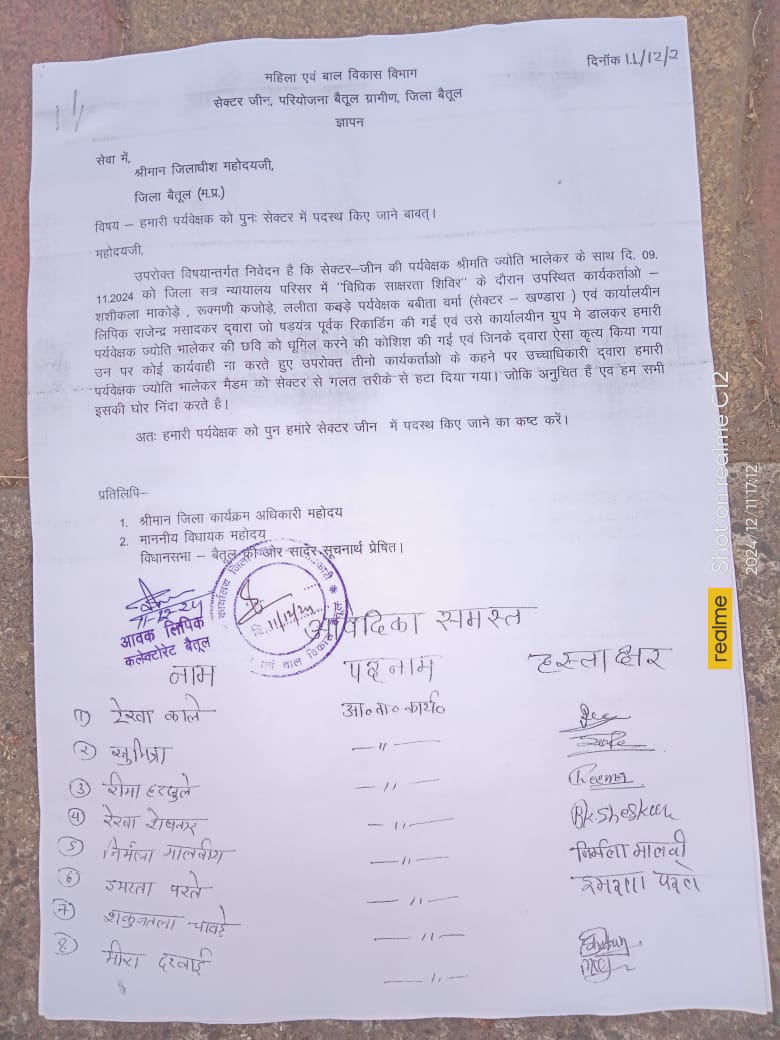 दिनॉक 11/12/2
महिला एवं बाल विकास विभाग
सेक्टर जीन, परियोजना बैतूल ग्रामीण, जिला बैतूल
ज्ञापन
सेवा में,
श्रीमान जिलाधीश महोदयजी,
जिला बैतूल (म.प्र.)
विषय – हमारी पर्यवेक्षक को पुनः सेक्टर में पदस्थ किए जाने बाबत्।
महोदयजी,
उपरोक्त विषयान्तर्गत निवेदन है कि सेक्टर–जीन की पर्यवेक्षक श्रीमति ज्योति भालेकर के साथ दि. 09.
11.2024 को जिला सत्र न्यायालय परिसर में "विधिक साक्षरता शिविर" के दौरान उपस्थित कार्यकर्ताओ –
शशीकला माकोड़े , रूक्मणी कजोड़े, ललीता कबड़े पर्यवेक्षक बबीता वर्मा (सेक्टर – खण्डारा ) एवं कार्यालयीन
लिपिक राजेन्द्र मसादकर द्वारा जो षड़यंत्र पूर्वक रिकार्डिंग की गई एवं उसे कार्यालयीन ग्रुप मे डालकर हमारी
पर्यवेक्षक ज्योति भालेकर की छवि को धूमिल करने की कोशिश की गई एवं जिनके द्वारा ऐसा कृत्य किया गया
उन पर कोई कार्यवाही ना करते हुए उपरोक्त तीनो कार्यकर्ताओ के कहने पर उच्चाधिकारी द्वारा हमारी
पर्यवेक्षक ज्योति भालेकर मैडम को सेक्टर से गलत तरीके से हटा दिया गया। जोकि अनुचित है एव हम सभी
इसकी घोर निंदा करते है।
अतः हमारी पर्यवेक्षक को पुन हमारे सेक्टर जीन में पदस्थ किए जाने का कष्ट करें।
प्रतिलिपि–
1. श्रीमान जिला कार्यक्रम अधिकारी महोदय
2. माननीय विधायक महोदय
विधानसभा – बैतूल की ओर सादर सूचनार्थ प्रेषित।
11-12-24
आवक लिपिक
कलेक्टोरेट बैतूल
कार्यालय जिला
दि. 11/12/24
एवं बाल विकास
आवेदिका समस्त
नाम पदनाम हस्ताक्षर
① रेखा काले आ०बा०कार्य०
② सुमित्रा —〃—
③ रीमा हरसुले —〃— Reema
④ रेखा शेषकर —〃— Rk.Sheskar
⑤ निर्मला मालवीय —〃— निर्मला मालवी
⑥ इमरता परते —〃— इमरता परते
⑦ शकुन्तला चावड़े —〃—
⑧ मीरा दरवाई —〃—
realme Shot on realme C12
2024/12/11 17:12